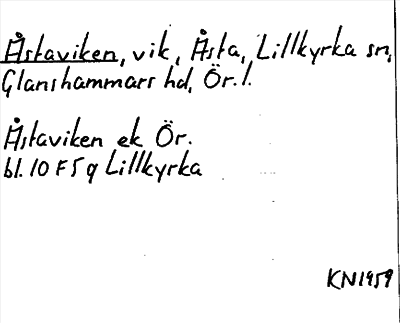 Åstaviken, vik, Åsta, Lillkyrka sn,
Glanshammars hd, Ör. l.
Åstaviken ek Ör.
bl. 10 F 5 g Lillkyrka
KN1959